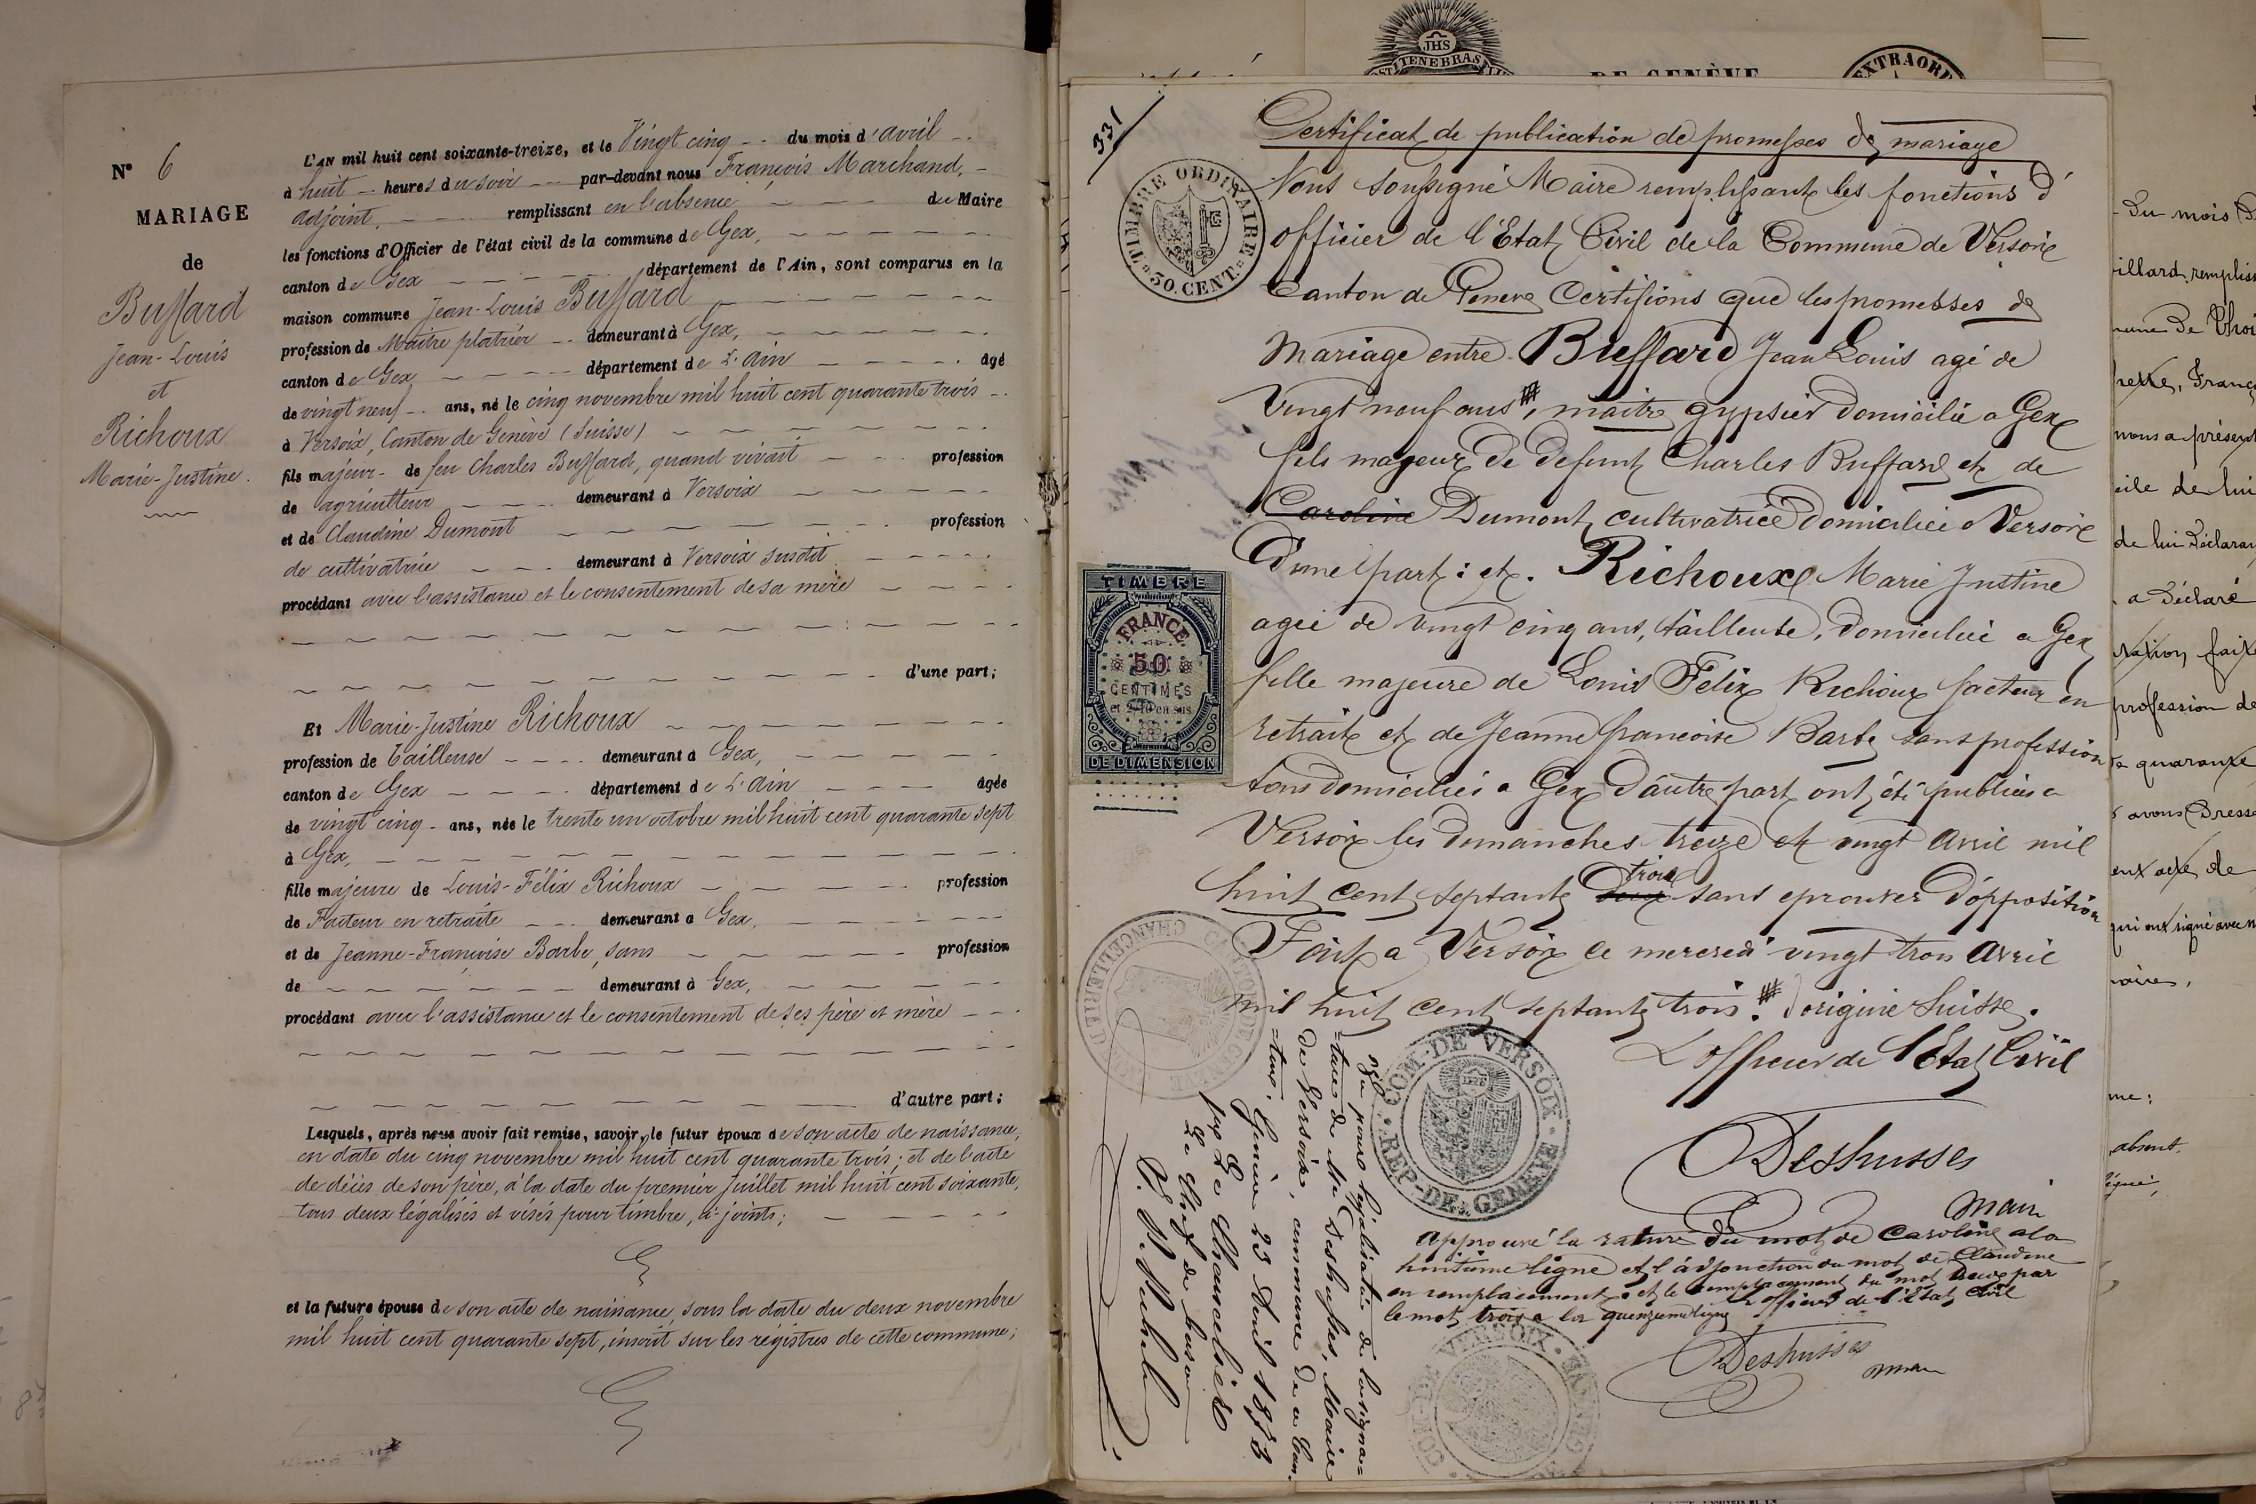 N° 6
MARIAGE
de
Buffard
Jean-Louis
et
Richoux
Marie-Justine.
L'AN mil huit cent soixante-treize, et le Vingt cinq -- du mois d'avril --
à huit -- heures du soir -- par-devant nous François Marchand, -
adjoint, remplissant en l'absence du Maire
les fonctions d'Officier de l'état civil de la commune de Gex,
canton de Gex département de l'Ain, sont comparus en la
maison commune Jean-Louis Buffard
profession de Maître platrier -- demeurant à Gex,
canton de Gex département de L'Ain âgé
de vingt neuf -- ans, né le cinq novembre mil huit cent quarante trois --
à Versoix, Canton de Genève (Suisse)
fils majeur - de feu Charles Buffard, quand vivait profession
de agriculteur demeurant à Versoix
et de Claudine Dumont profession
de cultivatrice demeurant à Versoix susdit
procédant avec l'assistance et le consentement de sa mère
d'une part;
Et Marie-Justine Richoux
profession de Tailleuse ---- demeurant à Gex,
canton de Gex département de L'Ain âgée
de vingt cinq - ans, née le trente un octobre mil huit cent quarante sept
à Gex,
fille majeure de Louis-Félix Richoux profession
de Facteur en retraite demeurant à Gex,
et de Jeanne-Françoise Barbe, sans profession
de demeurant à Gex,
procédant avec l'assistance et le consentement de ses père et mère
d'autre part;
Lesquels, après nous avoir fait remise, savoir, le futur époux de son acte de naissance,
en date du cinq novembre mil huit cent quarante trois; et de l'acte
de décès de son père, à la date du premier juillet mil huit cent soixante,
tous deux légalisés et visés pour timbre, ci-joints;
et la future épouse de son acte de naissance, sous la date du deux novembre
mil huit cent quarante sept, inscrit sur les registres de cette commune;
JHS
POST TENEBRAS LUX
DE GENÈVE
EXTRAORD
331
TIMBRE ORDINAIRE
30. CENT.
Certificat de publication de promesses de mariage
Nous soussigné Maire remplissant les fonctions d'
officier de l'Etat Civil de la Commune de Versoix
Canton de Geneve Certifions que les promesses de
Mariage entre Buffard Jean Louis agé de
Vingt neuf ans #, maitre gypsier domicilié a Gex
fils majeur de defunt Charles Buffard et de
Caroline Dumont cultivatrice domiciliée a Versoix
D'une part: et. Richoux Marie Justine
agée de vingt cinq ans, tailleuse, domiciliée a Gex
fille majeure de Louis Félix Richoux facteur en
retraite et de Jeanne francoise Barbe sans profession
tous domiciliés a Gex D'autre part ont été publiées a
Versoix les dimanches treize et vingt avril mil
huit cent septante deux trois sans eprouver d'opposition
Fait a Versoix ce mercredi vingt trois avril
mil huit cent septante trois. # d'origine Suisse.
L'officier de l'Etat Civil
Deshusses
Maire
Approuvé la rature du mot de Caroline a la
huitieme ligne et l'adjonction du mot de Claudine
en remplacement et le remplacement du mot deux par
le mot trois a la quinzieme ligne
L'officier de l'Etat Civil
Deshusses
maire
TIMBRE
FRANCE
50
CENTIMES
et 2/10 en sus
DE DIMENSION
COM. DE VERSOIX
REP. DE GENEVE
CHANCELLERIE DU CANTON DE GENÈVE
Vu pour légalisation de la signa=
=ture de Mr Deshusses, Maire
de Versoix, commune de ce Can=
=ton. Genève 23 Avril 1873
pr Le Chancelier
Le Chef de bureau
COM. DE VERSOIX
du mois d
illard, rempliss
nous a présent
de lui déclaran
a déclaré
profession de
quarante
avons dressé
qui ont signé avec n